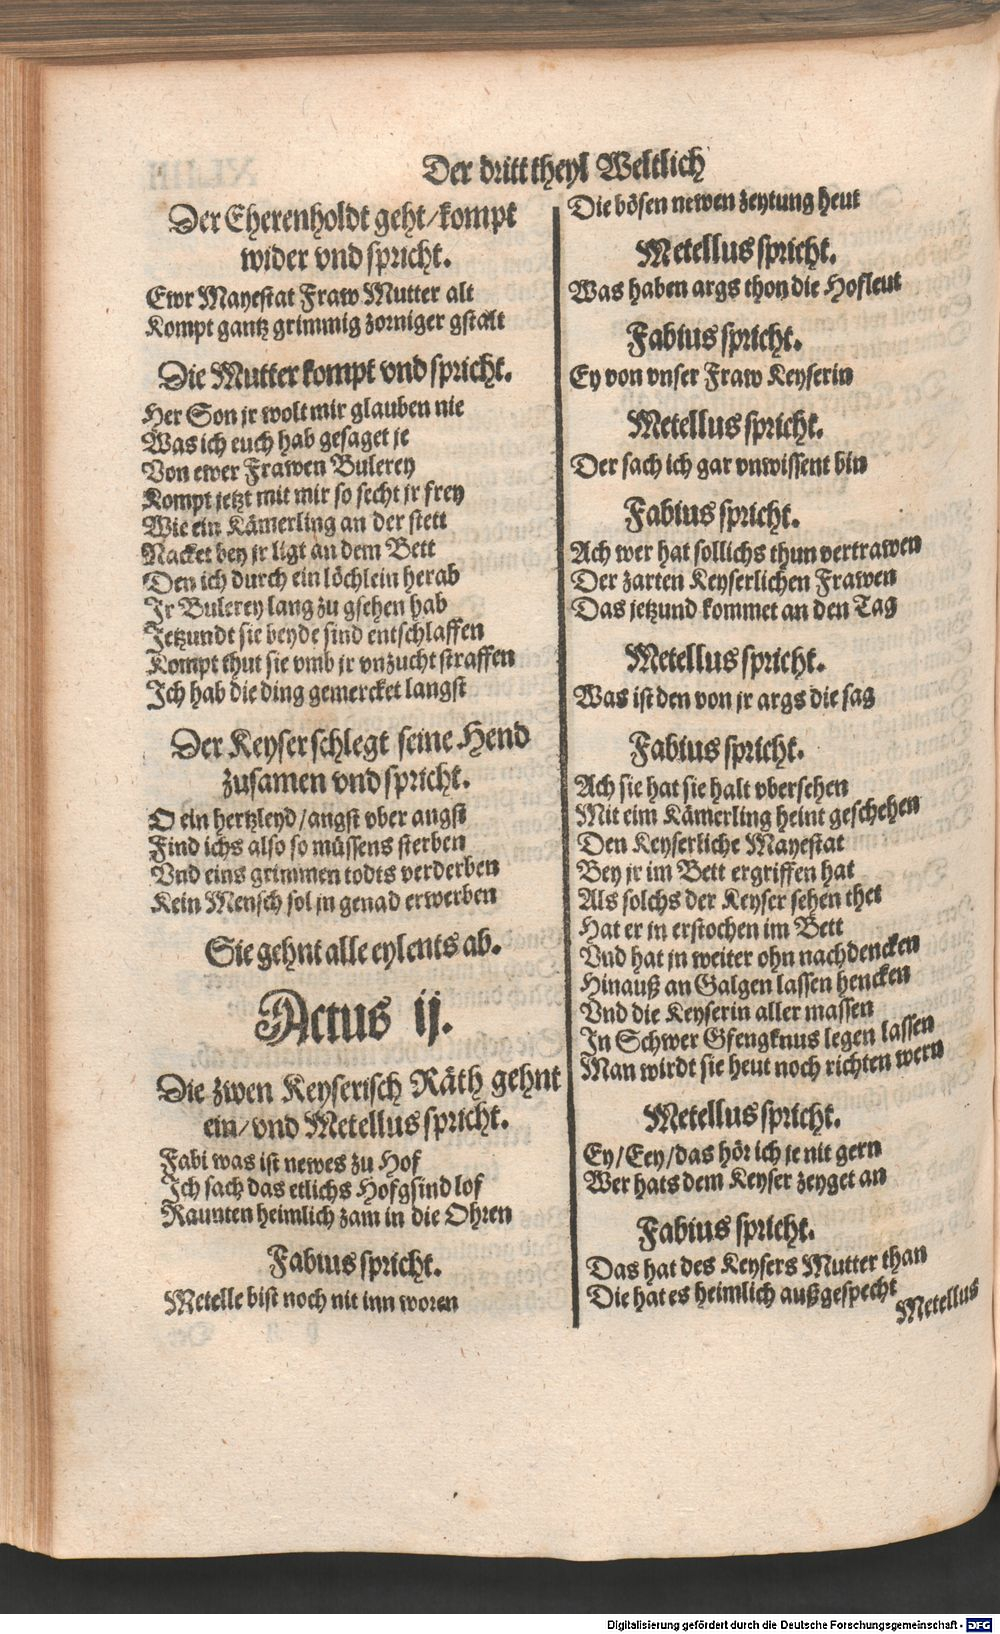 Der dritt theyl Weltlich
Der Eherenholdt geht/kompt
wider vnd spricht.
Ewr Mayestat Fraw Mutter alt
Kompt gantz grimmig zorniger gstalt
Die Mutter kompt vnd spricht.
Her Son jr wolt mir glauben nie
Was ich euch hab gesaget je
Von ewer Frawen Bulerey
Kompt jetzt mit mir so secht jr frey
Wie ein Kämerling an der stett
Nacket bey jr ligt an dem Bett
Den ich durch ein löchlein herab
Jr Bulerey lang zu gsehen hab
Jetzundt sie beyde sind entschlaffen
Kompt thut sie vmb jr vnzucht straffen
Ich hab die ding gemercket langst
Der Keyser schlegt seine Hend
zusamen vnd spricht.
O ein hertzleyd/angst vber angst
Find ichs also so müssens sterben
Vnd eins grimmen todts verderben
Kein Mensch sol jn genad erwerben
Sie gehnt alle eylents ab.
Actus ij.
Die zwen Keyserisch Räth gehnt
ein/vnd Metellus spricht.
Fabi was ist newes zu Hof
Ich sach das etlichs Hofgsind lof
Raunten heimlich zam in die Ohren
Fabius spricht.
Metelle bist noch nit inn woren
Die bösen newen zeytung heut
Metellus spricht.
Was haben args thon die Hofleut
Fabius spricht.
Ey von vnser Fraw Keyserin
Metellus spricht.
Der sach ich gar vnwissent bin
Fabius spricht.
Ach wer hat sollichs thun vertrawen
Der zarten Keyserlichen Frawen
Das jetzund kommet an den Tag
Metellus spricht.
Was ist den von jr args die sag
Fabius spricht.
Ach sie hat sie halt vbersehen
Mit eim Kämerling heint geschehen
Den Keyserliche Mayestat
Bey jr im Bett ergriffen hat
Als solchs der Keyser sehen thet
Hat er in erstochen im Bett
Vnd hat jn weiter ohn nachdencken
Hinauß an Galgen lassen hencken
Vnd die Keyserin aller massen
In Schwer Gfengknus legen lassen
Man wirdt sie heut noch richten wern
Metellus spricht.
Ey/Eey/das hör ich je nit gern
Wer hats dem Keyser zeyget an
Fabius spricht.
Das hat des Keysers Mutter than
Die hat es heimlich außgespecht
Metellus
Digitalisierung gefördert durch die Deutsche Forschungsgemeinschaft - DFG